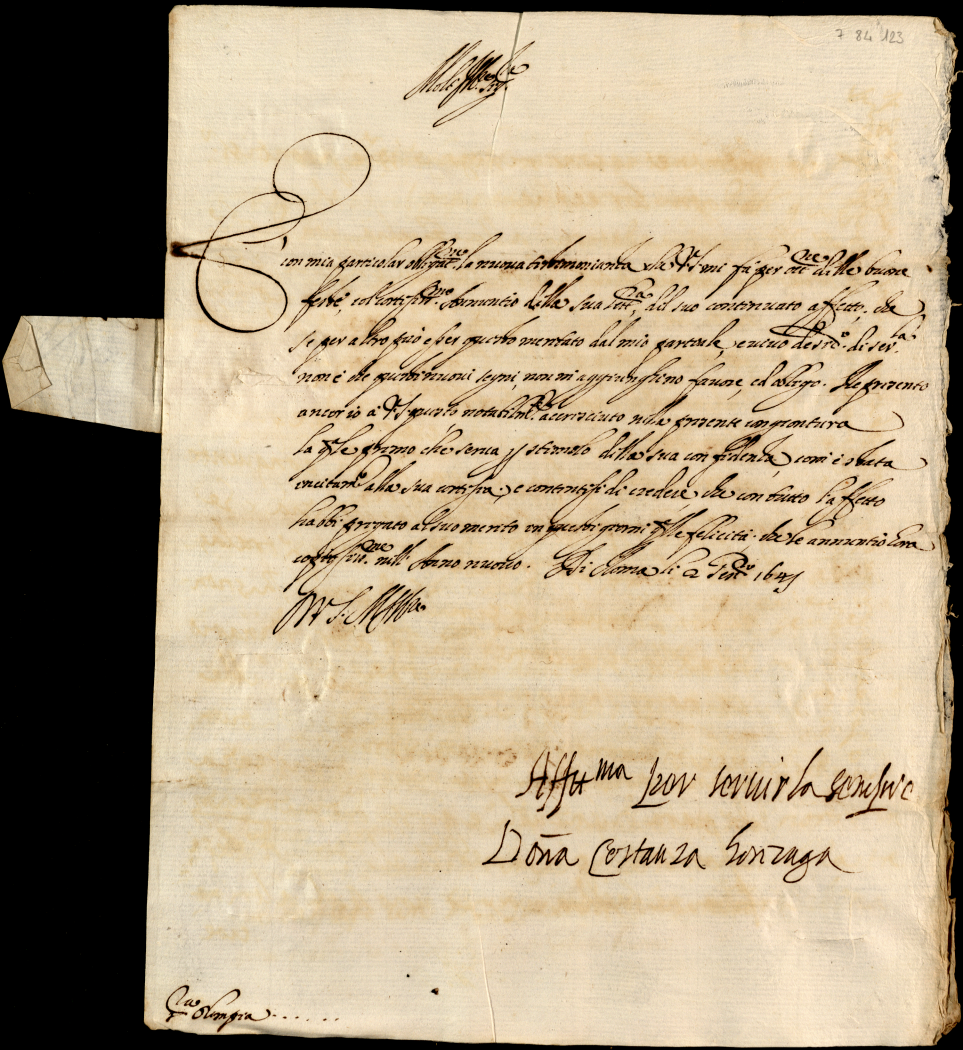 7 84 123
Molt Ill.re Sig.ra
È con mia particolar obligat.ne la nuova testimonianza che V.S. mi fà per occ.ne delle buone
feste, col cortesiss.mo Annuntio della sua sott.ra, del suo continuato affetto, che
se per altro può esser questo meritato dal mio partiale, e vivo desid.o di ser.la
non è che questi nuovi segni, non mi aggiunghino favore, ed obligo. Le presento
ancor io à V.S. questo notabilm.te accresciuto nella presente congiontura
la q.le primo che serva p. stimolo della sua confidenza, come è stata
incitam.to alla sua cortesia, e contentisi di credere, che con tutto l'affetto
habbi pregato al suo merito in questi giorni q.lle felicità che le annuntio hora
copiosiss.me nell' Anno nuovo. Di Roma li 2 Gen.ro 1645
D V.S. Molt' Ill.re
Affet.ma per servirla sempre
Doña Costanza Gonzaga
S.ra Olimpia . . . . . .